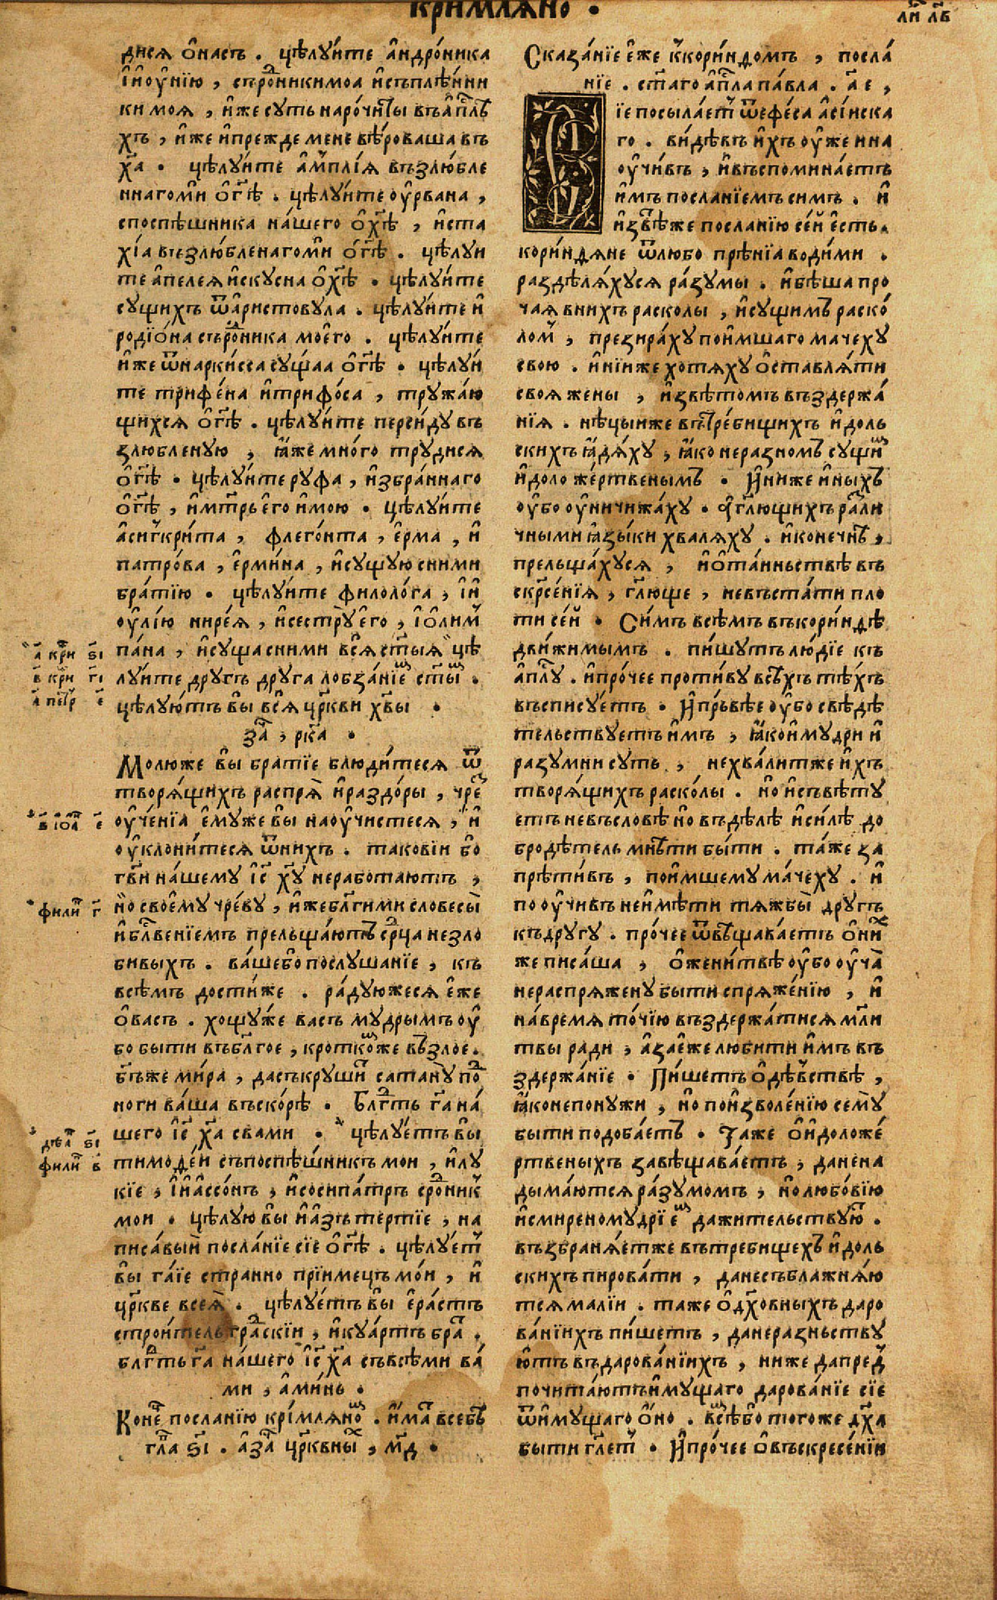 кримлѧно •
ли л҃в
дисѧ ѻ҆насъ . цѣлꙋи́те а҆ндро́ника
і҆ и҆оу҆нїю , съро́дникимоѧ и҆съплѣ́нни
ки моѧ , и҆же сꙋть наро́чїты въа҆пⷭ҇лѣ
хъ , и҆же и҆пре́жде мене вѣ́роваша въ
хⷭ҇а . цѣлꙋи́те а҆мплі́ѧ възлю́бле
ннагоми ѻ҆гⷭ҇ѣ . цѣлꙋи́те оу҆рвана ,
споспѣшника на́шего ѻ҆хⷭ҇ѣ , и҆ста
хі́а възлю́бленагоми ѻ҆гⷭ҇ѣ . цѣлꙋи
те а҆пелеѧ и҆скꙋсна ѻ҆хⷭ҇ѣ . цѣлꙋи́те
сꙋщихъ ѿа҆ристовꙋла . цѣлꙋи́те и҆
родїѻ́на съро́дника моего̀ . цѣлꙋи́те
и҆же ѿнаркі́сса сꙋщаа ѻ҆гⷭ҇ѣ . цѣлꙋи
те трифе́на и҆трифо́са , трꙋжа́ю
щихсѧ ѻ҆гⷭ҇ѣ . цѣлꙋи́те перси́дꙋ въ
злюбленꙋю , ꙗ҆́же мно́го трꙋдисѧ
ѻ҆гⷭ҇ѣ . цѣлꙋи́те рꙋфа , и҆збра́ннаго
ѻ҆гⷭ҇ѣ , и҆мт҃рь е҆го и҆мою . цѣлꙋи́те
а҆сигкри́та , флего́нта , е҆рма , и҆
патро́ва , е҆рми́на , и҆сꙋщꙋю сними
бра́тїю . цѣлꙋи́те филоло́га , і҆и҆
оу҆лі́ю нире́ѧ , и҆сестрꙋ е҆го , і҆о҆лим
па́на , и҆сꙋщаѧ сними всѧ ст҃ыѧ цѣ
лꙋи́те дрꙋгъ дрꙋга лобза́нїеⷨ ст҃ыⷨ .
цѣлꙋю́тъ вы всѧ цр҃кви хв҃ы •
за҃ , рка •
Молюже вы бра́тїе блюди́тесѧ ѿ
творѧ́щихъ распрѧ̀ и҆раздо́ры , чреⷥ
оу҆че́нїа е҆мꙋже вы наоу҆чистесѧ , и҆
оу҆клони́тесѧ ѿнихъ . такові́и бо
гв҃и на́шемꙋ і҆с҃ хꙋ҃ неработаютъ ,
но своемꙋ чре́вꙋ , и҆жебл҃гими словесы̀
и҆блⷭ҇вениемъ прельща́ютъ срⷣца незло
бивыхъ . ва́шебо послꙋша́нїе , къ
всѣмъ дости́же . ра́дꙋюжесѧ е҆же
ѻ҆васъ . хощꙋ́же васъ мꙋ́дрымъ оу҆
бо быти въбл҃гое , кротко́же взлое .
бг҃ъже ми́ра , дасъкрꙋши́тъ сатанꙋ̀ поⷣ
ноги ва́ша въско́рѣ . Блⷣгть гⷭ҇а на́
шего і҆с҃ хⷭ҇а сва́ми . цѣлꙋ́етъ вы
тимоѳе́й съпоспѣ́шникъ мои , и҆лꙋ
кїе , і҆и҆а҆ссо́нъ , и҆сосипа́тръ срⷣоникⷨ
мои . цѣлꙋю вы и҆а҆зъ те́ртїе , на
писа́выи посла́нїе сїе ѻ҆гⷭ҇ѣ . цѣлꙋетⸯ
вы га́їе стра́нно прїимецъ мо́и , и҆
цр҃кве всеѧ̀ . цѣлꙋ́етъ вы е҆ра́стъ
строи́тель гра́дскіи , и҆кꙋа́ртъ бра́тъ .
блⷣгть гⷭ҇а на́шего і҆с҃ хⷭ҇а съвсѣ́ми ва́
ми , а҆ми́нь .
Коне́цъ посланїю крі́млѧноⷨ . и҆́матъ всебѣ̀
гла ѕ҃і . а҆за҃ цр҃квныⷯ , м҃д .
а҃ кри ѕ҃і
в҃ кри г҃і
а҃ петр е҃
в҃ іоа е҃
фили г҃
дѣа ѕ҃і
фили в҃
Сказа́нїе е҆же кко́ринѳомъ , посла́
нїе . ст҃аго а҆пⷭ҇ла па́вла . а҃ е ,
їе посыла́етъ ѿефе́са а҆сі́йска
го . ви́дѣвъ и҆хъ оу҆же и҆на
оу҆чи́въ , и҆въспомина́етъ
и҆мъ посла́нїемъ симъ . и҆
и҆звѣ́тже посланїю се́й е҆сть .
коринѳѧне ѿлюбо прѣ́нїа водими .
раздѣлѧ́хꙋсѧ ра́зꙋмы . и҆бѣша про
чаѧ внихъ расколы , и҆сꙋщимъ раско́
лоⷨ , презира́хꙋ пои́мшаго ма́чехꙋ
свою . и҆нїиже хотѧхꙋ ѻ҆ставлѧ́ти
своѧ жены , и҆звѣ́томъ въздержа́
нїѧ . нѣцыи́же въ тре́бищихъ и҆доль
скихъ ꙗ҆дѧ́хꙋ , ꙗ҆ко неразномъ сꙋщиⷨ
и҆доло же́ртвенымъ . И҆ниже и҆ныхъ
оу҆бо оу҆ничижа́хꙋ . а҆ гл҃ющихъ разли
чными ꙗ҆зы́ки хвалѧхꙋ . и҆коне́чнѣ ,
прельща́хꙋсѧ , и҆ѻ҆та́иньствѣ въ
скрⷭ҇е́нїѧ , гл҃юще , невъста́ти пло
ти се́й . Симъ всѣмъ въкоринѳѣ
дви́жимымъ . пи́шꙋтъ лю́дїе къ
а҆пⷭ҇лꙋ . и҆про́чее проти́вꙋ всѣхъ тѣ́хъ
въспи́сꙋетъ . И҆прьвѣе оу҆́бо свѣдѣ́
тельствꙋетъ и҆мъ , ꙗ҆кои҆ мꙋдри и҆
разꙋмни сꙋть , нехва́литже и҆хъ
творѧ́щихъ раско́лы . но и҆съвѣ́тꙋ
етъ невъсловѣ̀ но въдѣ́лѣ и҆си́лѣ до
бродѣтель мнѣти бы́ти . та́же за
прѣти́въ , пои́мшемꙋ ма́чехꙋ . и҆
по оу҆чивъ неи҆мѣти тѧ́жбы дрꙋгъ
къдрꙋгꙋ . про́чее ѿвѣщава́етъ ѻ҆ниⷯ
же писа́ша , ѻ҆жени́твѣ оу҆́бо оу҆ча
нераспрѧженꙋ быти спрѧже́нїю , и҆
на́времѧ то́чїю въздержа́тисѧ мл҃и
твы ради , а҆за е҆же люби́ти и҆мъ въ
здержа́нїе . Пи́шетъ ѻ҆дѣ́встввѣ ,
ꙗ҆конепонꙋжи , но пои҆зволе́нїю семꙋ̀
быти подоба́етъ . Та́же ѻ҆и҆доложе́
ртвеныхъ завѣщава́етъ , данена
дыма́ютсѧ ра́зꙋмомъ , но любо́вїю
и҆смиреномꙋдрїеⷨ дажи́тельствꙋюⷮ .
възбранѧ́етже въ требищехъ и҆доль
скихъ пирова́ти , данесъблажнѧ́ю
тсѧ малїи . таже ѻ҆дꙋхо́вныхъ даро
ва́нїихъ пи́шетъ , данеразньствꙋ
ютъ вдарова́нїихъ , ниже да преⷣ
почита́ютъ и҆мꙋщаго дарова́нїе сїе
ѿи҆мꙋщаго ѻ҆но . всѣ́бо тогоже дх҃а
быти гл҃етъ . И҆про́чее ѻ҆въскресе́нїи